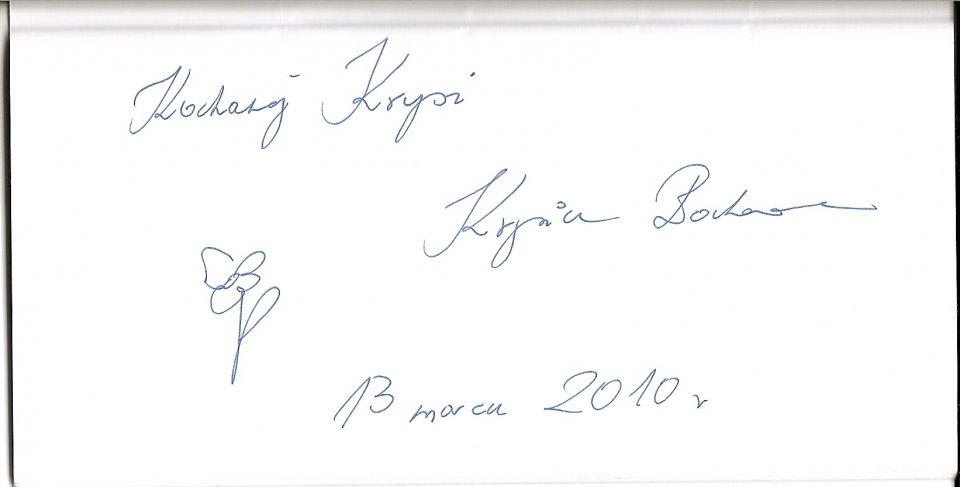 Kochanej Krysi
Krysia
13 marca 2010 r